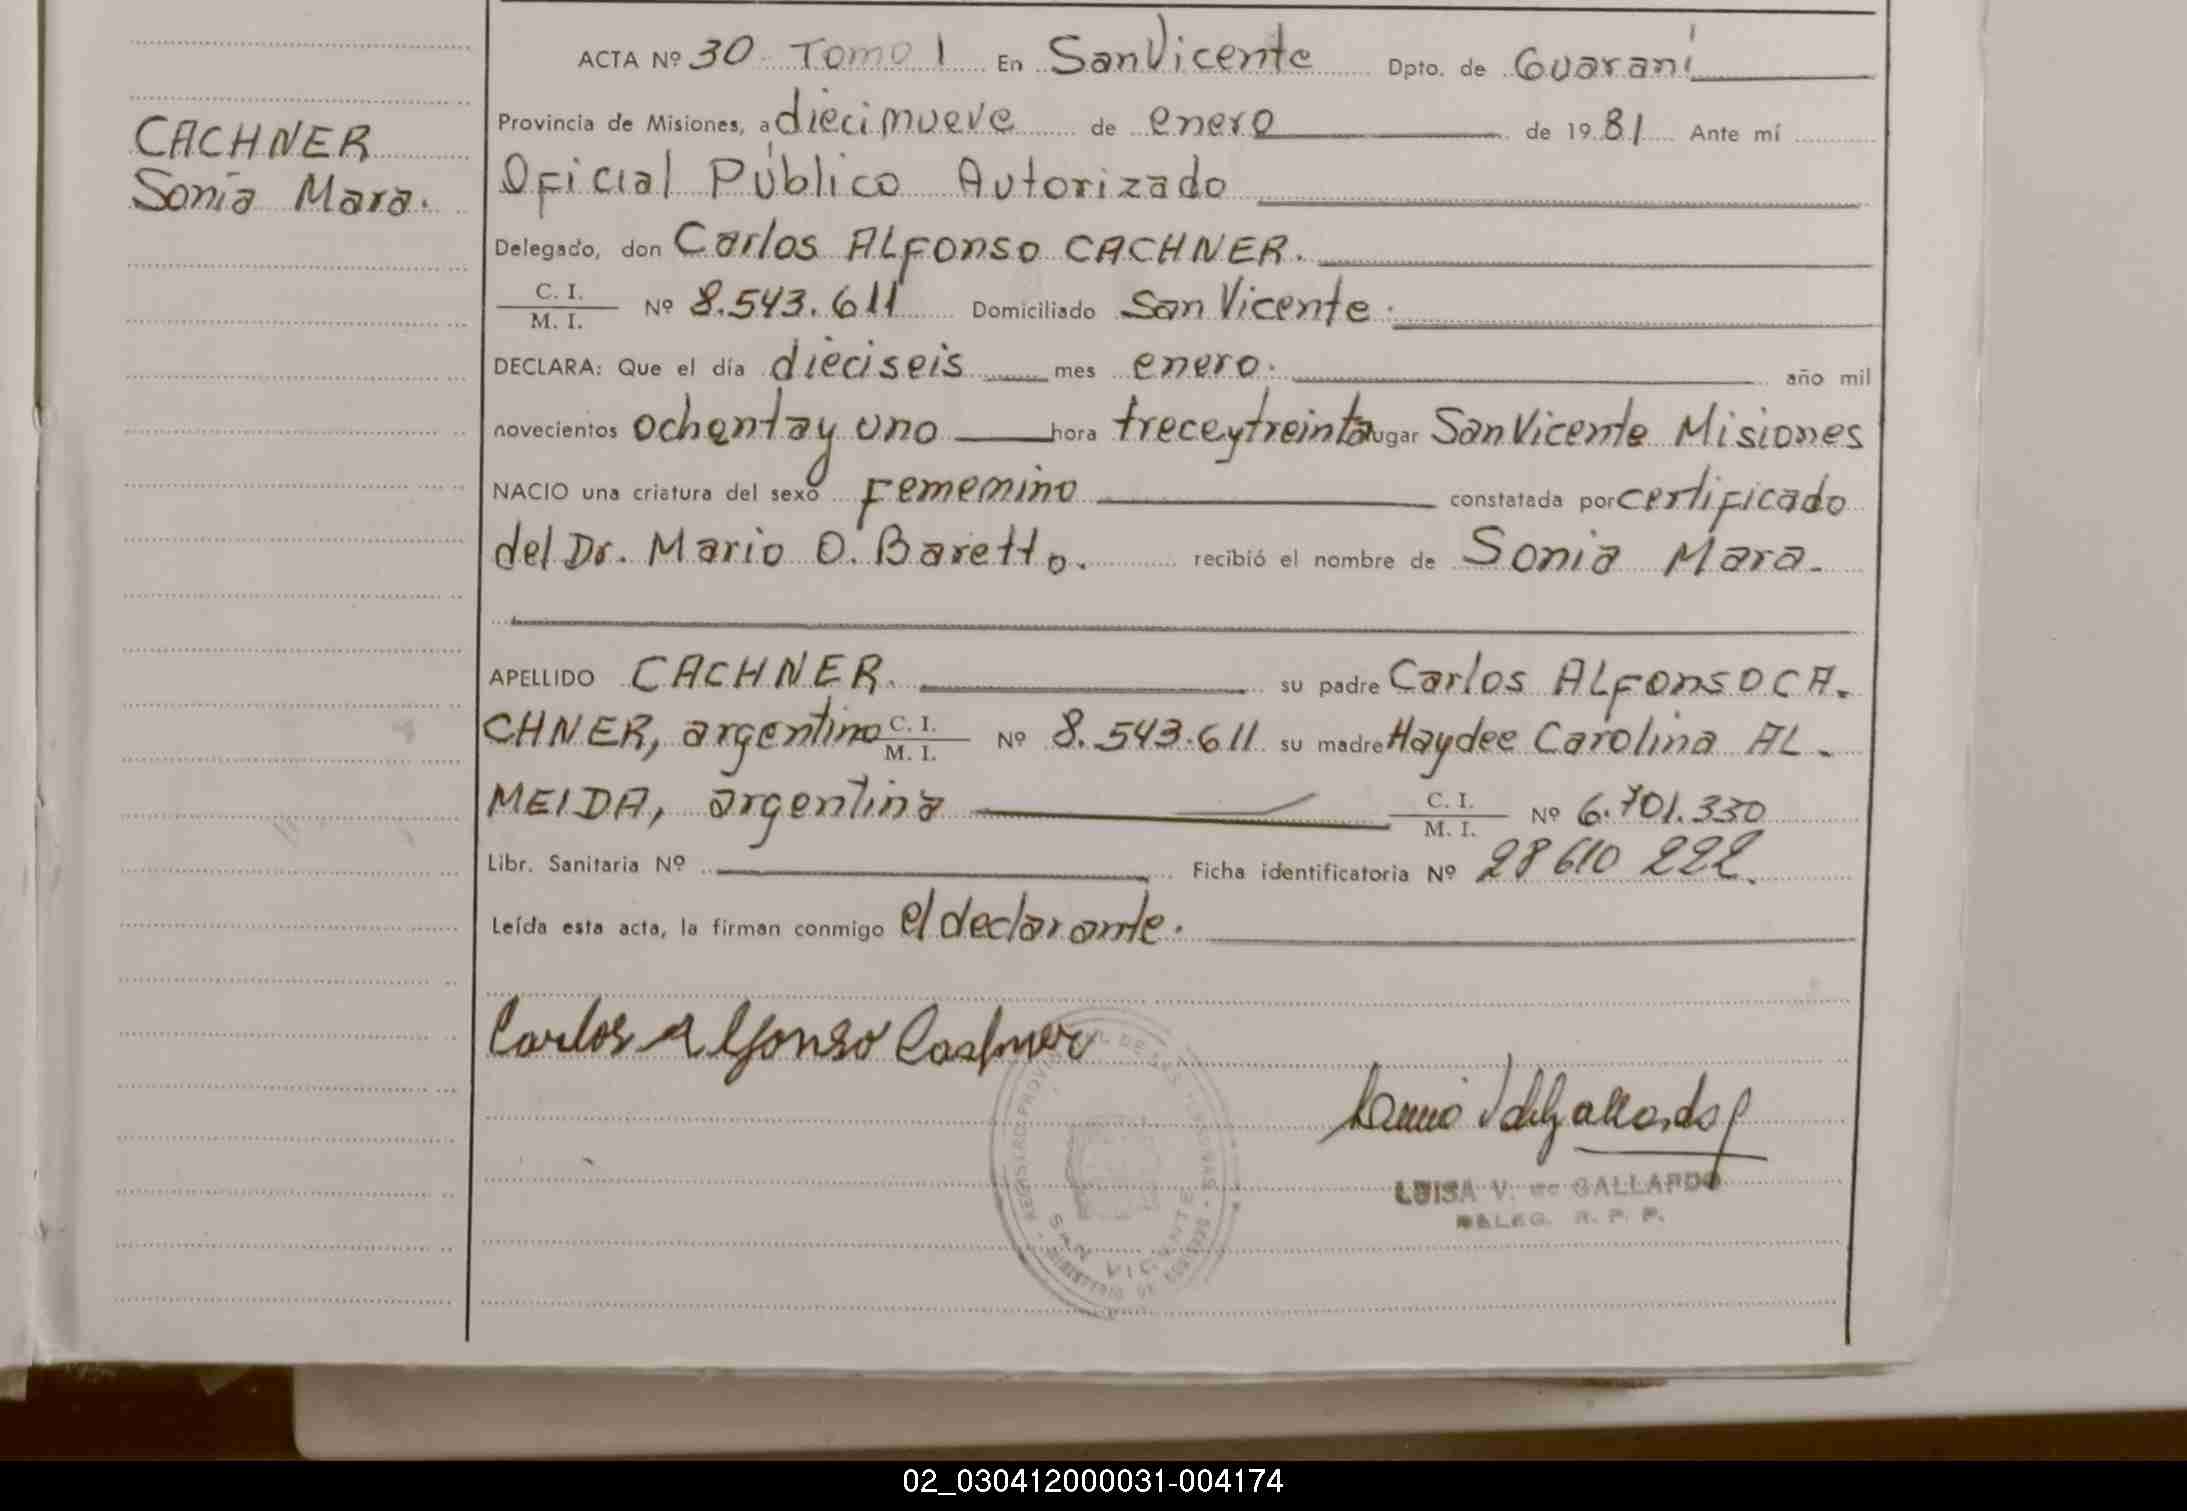 ACTA Nº 30 Tomo 1 En San Vicente Dpto. de Guaraní
Provincia de Misiones, a diecinueve de enero de 1981 Ante mí
CACHNER
Sonia Mara.
Oficial Público Autorizado
Delegado, don Carlos Alfonso CACHNER.
C. I.
M. I. Nº 8.543.611 Domiciliado San Vicente.
DECLARA: Que el día dieciseis mes enero. año mil
novecientos ochenta y uno hora trece y treinta lugar San Vicente Misiones
NACIO una criatura del sexo Femenino constatada por certificado
del Dr. Mario O. Baretto. recibió el nombre de Sonia Mara.
APELLIDO CACHNER. su padre Carlos Alfonso CA-
CHNER, argentino C. I.
M. I. Nº 8.543.611 su madre Haydee Carolina AL-
MEIDA, argentina C. I.
M. I. Nº 6.701.330
Libr. Sanitaria Nº Ficha identificatoria Nº 28610 222.
Leída esta acta, la firman conmigo el declarante.
Carlos Alfonso Cachner
LUISA V. de GALLARDO
DELEG. R. P. P.
SAN VICENTE
02_030412000031-004174